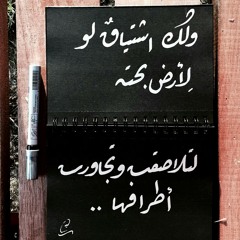 ولك اشتياقٌ لو
لأرض بحته
لتلاصقت وتجاورت
أطرافها ..